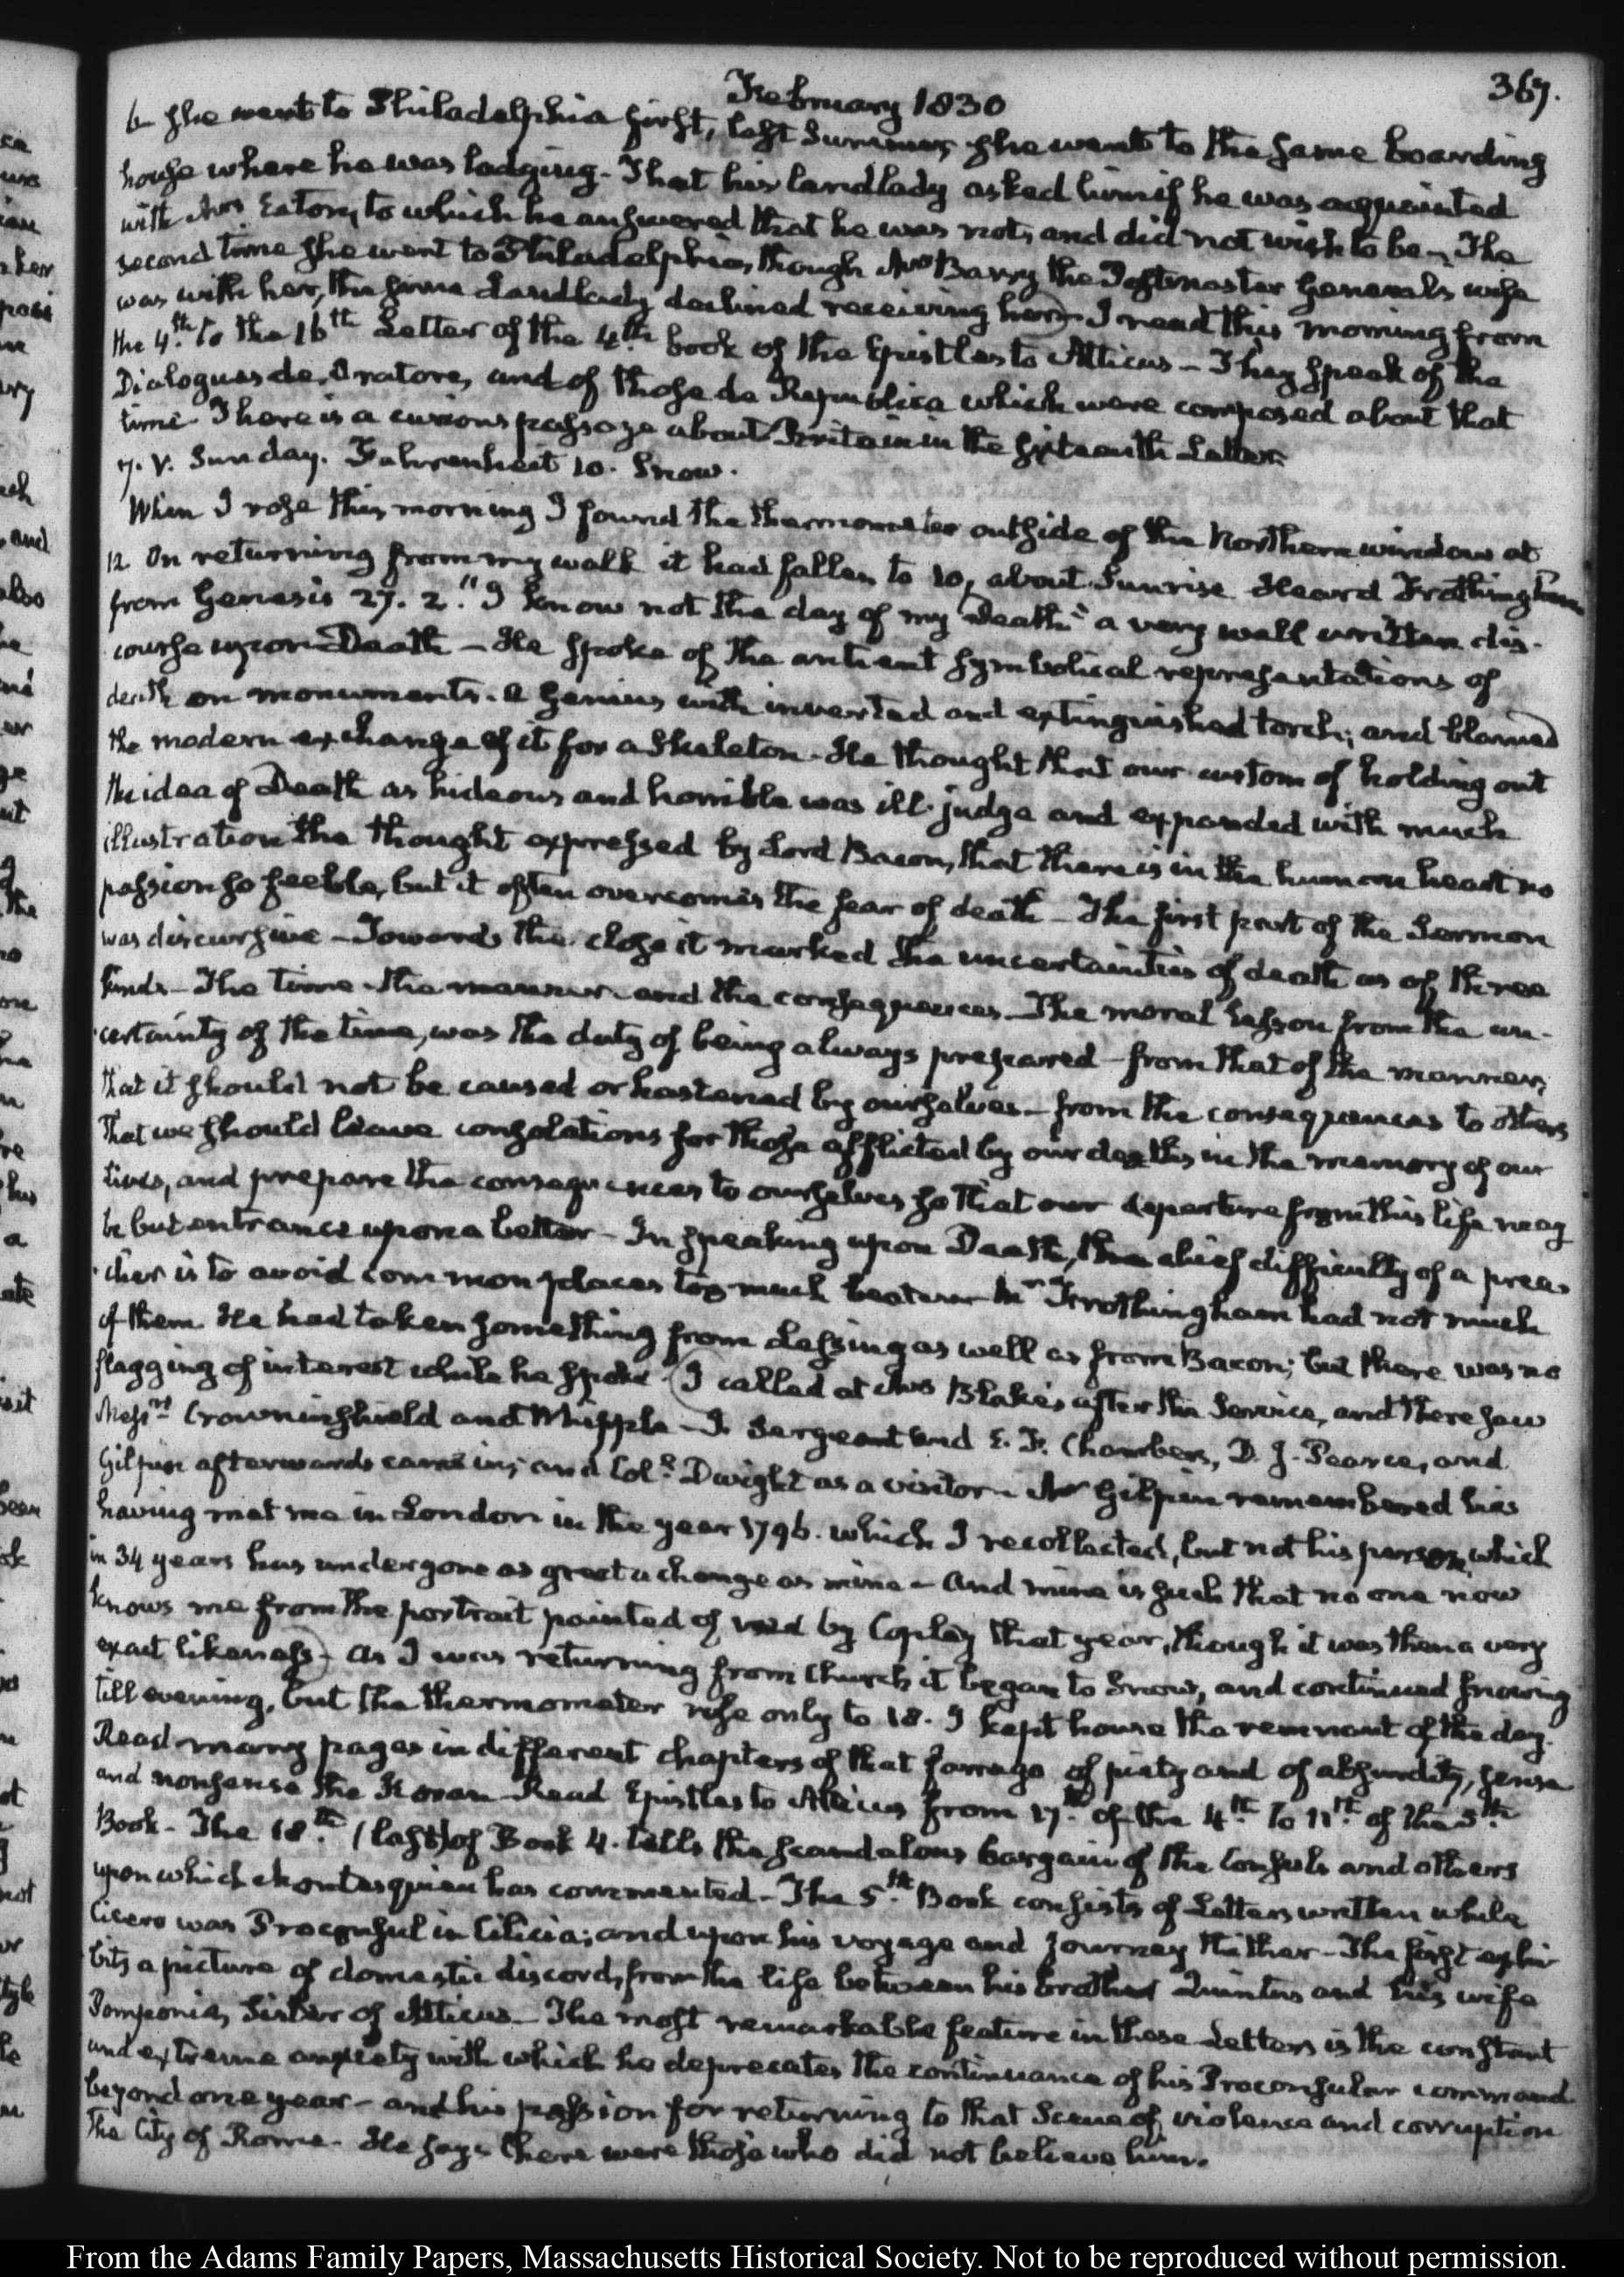 February 1830
367.
6 she went to Philadelphia first, last Summer, she went to the same boarding
house where he was lodging- That his landlady asked him if he was acquainted
with Mrs Eaton, to which he answered that he was not, and did not wish to be. The
second time she went to Philadelphia, though Mrs Barry the Postmaster General's wife
was with her, the same Landlady declined receiving her- I read this morning from
the 4th to the 16th Letter of the 4th book of the Epistles to Atticus - They speak of the
Dialogues de Oratore, and of those de Republica which were composed about that
time- There is a curious passage about Britain in the sixteenth Letter.
7. V. Sunday. Fahrenheit 10. Snow.
When I rose this morning I found the thermometer outside of the Northern window at
12 On returning from my walk it had fallen to 10, about Sunrise Heard Frothingham
from Genesis 27. 2. "I know not the day of my Death" a very well written dis-
course upon Death - He spoke of the antient symbolical representations of
death on monuments. A Genius with inverted and extinguished torch; and blamed
the modern exchange of it for a Skeleton- He thought that our custom of holding out
the idea of Death as hideous and horrible was ill-judge and expanded with much
illustration the thought expressed by Lord Bacon, that there is in the human heart no
passion so feeble, but it often overcomes the fear of death - The first part of the Sermon
was discursive - Towards the close it marked the uncertainties of death as of three
kinds - The time - the manner and the consequences - The moral Lesson from the un-
certainty of the time, was the duty of being always prepared - from that of the manner,
that it should not be caused or hastened by ourselves - from the consequences to others
That we should leave consolations for those afflicted by our deaths in the memory of our
lives, and prepare the consequences to ourselves so that our departure from this life may
be but entrance upon a better - In speaking upon Death, the chief difficulty of a prea-
cher is to avoid common places too much beaten Mr Frothingham had not much
of them He had taken something from Lessing as well as from Bacon; but there was no
flagging of interest while he spoke - I called at Mrs Blake's after the Service, and there saw
Messrs Crowninshield and Whipple - J. Sergeant and E. F. Chambers, D. J. Pearce, and
Gilpin afterwards came in; and Coll Dwight as a visitor - Mr Gilpin remembered his
having met me in London in the year 1796. which I recollected, but not his person, which
in 34 years has undergone as great a change as mine - and mine is such that no one now
knows me from the portrait painted of me by Copley that year, though it was then a very
exact likeness - As I was returning from Church it began to Snow, and continued snowing
till evening, but the thermometer rose only to 18. I kept house the remnant of the day.
Read many pages in different chapters of that farrago of piety and of absurdity, sense
and nonsense the Koran - Read Epistles to Atticus from 17th of the 4th to 11th of the 5th
Book - The 18th (last) of Book 4. tells the scandalous bargain of the Consuls and others
upon which Montesquieu has commented - The 5th Book consists of Letters written while
Cicero was Proconsul in Cilicia; and upon his voyage and Journey thither - The first exhi-
bits a picture of domestic discord, from the life between his brother Quintus and his wife
Pomponia, Sister of Atticus - The most remarkable feature in these Letters is the constant
and extreme anxiety with which he deprecates the continuance of his Proconsular command
beyond one year - and his passion for returning to that Scene of violence and corruption
The City of Rome - He says there were those who did not believe him.
From the Adams Family Papers, Massachusetts Historical Society. Not to be reproduced without permission.